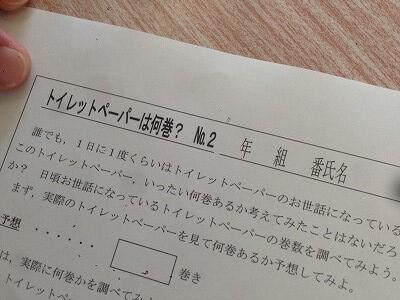 トイレットペーパーは何巻？ №2 年 組 番氏名
誰でも，１日に１度くらいはトイレットペーパーのお世話になっている
このトイレットペーパー，いったい何巻あるか考えてみたことはないだろ
か？ 日頃お世話になっているトイレットペーパーの巻数を調べてみよう。
まず，実際のトイレットペーパーを見て何巻あるか予想してみよ。
予想 ・・・・・・ 巻き
は，実際に何巻かを調べてみ
トイレットペ